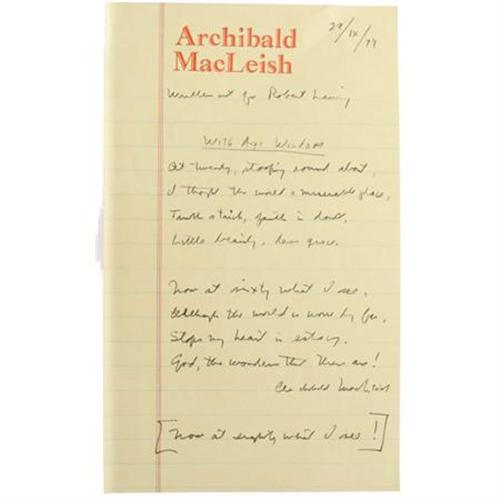 Archibald
MacLeish
29/IX/79
Written out for Robert
With Age Wisdom
At twenty, stooping round about,
I thought the world a miserable place,
Truth a trick, faith in doubt,
Little beauty, less grace.
Now at sixty what I see,
Although the world is worse by far,
Stops my heart in ecstasy.
God, the wonders that there are!
Archibald MacLeish
[Now at eighty what I see!]